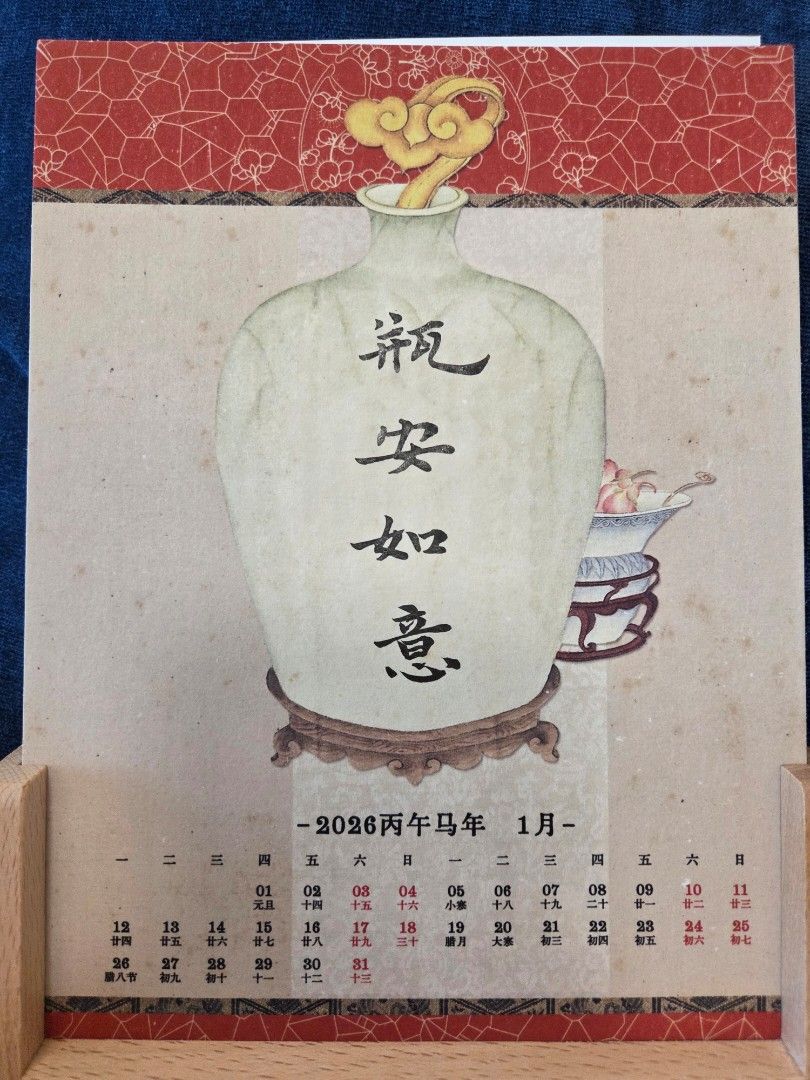 瓶
安
如
意
-2026丙午马年 1月-
一 二 三 四 五 六 日 一 二 三 四 五 六 日
01 02 03 04 05 06 07 08 09 10 11
元旦 十四 十五 十六 小寒 十八 十九 二十 廿一 廿二 廿三
12 13 14 15 16 17 18 19 20 21 22 23 24 25
廿四 廿五 廿六 廿七 廿八 廿九 三十 腊月 大寒 初三 初四 初五 初六 初七
26 27 28 29 30 31
腊八节 初九 初十 十一 十二 十三